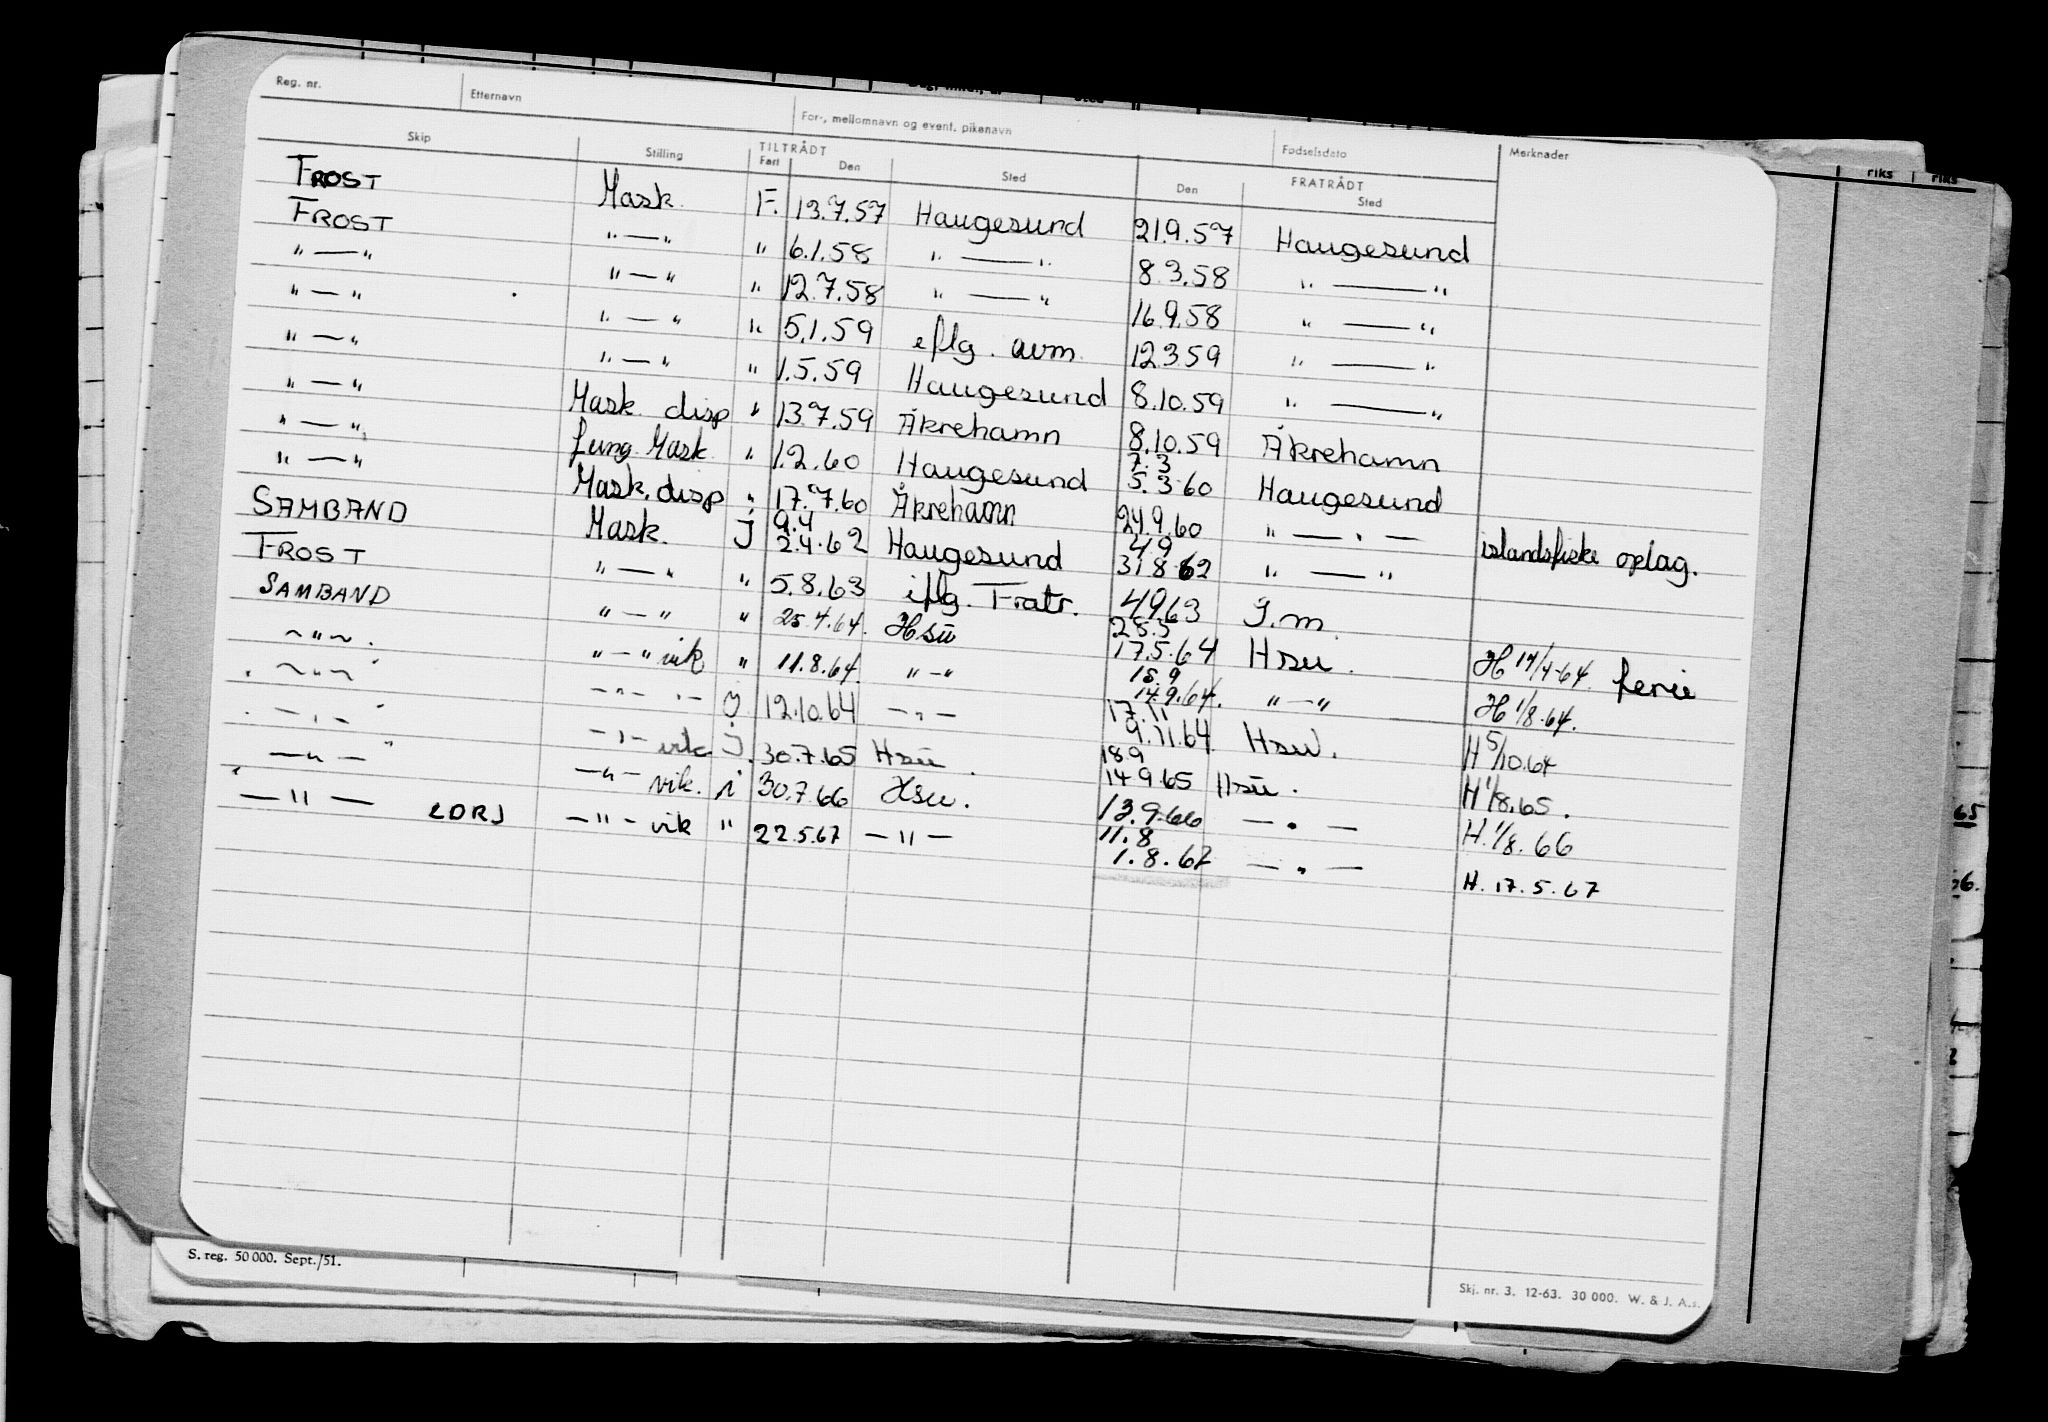 Reg. nr. Etternavn For-, mellomnavn og event. pikenavn Fødselsdato Merknader
Skip Stilling TILTRÅDT FRATRÅDT
Fart Den Sted Den Sted
FROST Mask. F. 13.7.57 Haugesund 21.9.57 Haugesund
FROST "—" " 6.1.58 "—" 8.3.58 "—"
"—" "—" " 12.7.58 "—" 16.9.58 "—"
"—" "—" " 5.1.59 eflg. avm. 12.3.59 "—"
"—" "—" " 1.5.59 Haugesund 8.10.59 "—"
"—" Mask. disp " 13.7.59 Åkrehamn 8.10.59 Åkrehamn
"—" fung. Mask. " 1.2.60 Haugesund 7.3 5.3.60 Haugesund
"—" Mask. disp " 17.7.60 Åkrehamn 24.9.60 "—"—
SAMBAND Mask. J 9.4 2.4.62 Haugesund 4.9 31.8.62 "—" islandsfiske oplag.
FROST "—" " 5.8.63 iflg. Fratr. 4.9.63 J.m.
SAMBAND "—" " 25.4.64. Hsu 28.5 17.5.64 Hsu. H 14/4-64 ferie
~"~ . "—" vik " 11.8.64. "—" 18.9 14.9.64. "—" H 1/8.64.
~"~ —"— "— J 12.10.64 —"— 17.11 9.11.64 Hsu. H 5/10.64
—"— —"— vik J. 30.7.65 Hsu. 18.9 14.9.65 Hsu. H 1/8.65.
—"— —"— vik. i 30.7.66 Hsu. 13.9.66 —"— H. 1/8.66
—"— LDRJ —"— vik " 22.5.67 —"— 11.8 1.8.67 —"— H. 17.5.67
S. reg. 50 000. Sept./51.
Skj. nr. 3. 12-63. 30 000. W. & J. A.s.